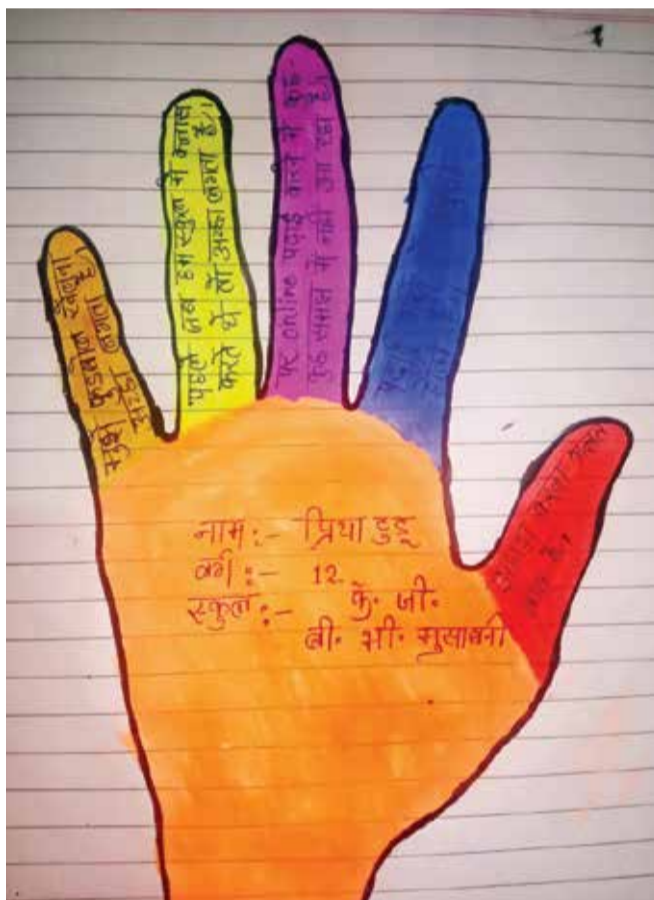 मुझे फुटबॉल खेलना
अच्छा लगता है।
पहले जब हम स्कुल में क्लास
करते थे तो अच्छा लगता है।
पर online पढ़ाई करने में कुछ-
कुछ समझ में नहीं आ रहा है।
पढ़ाई
करना गलत
बात है।
नाम :- प्रिया टुडू
वर्ग :- 12
स्कुल :- के. जी.
बी. भी. मुसाबनी